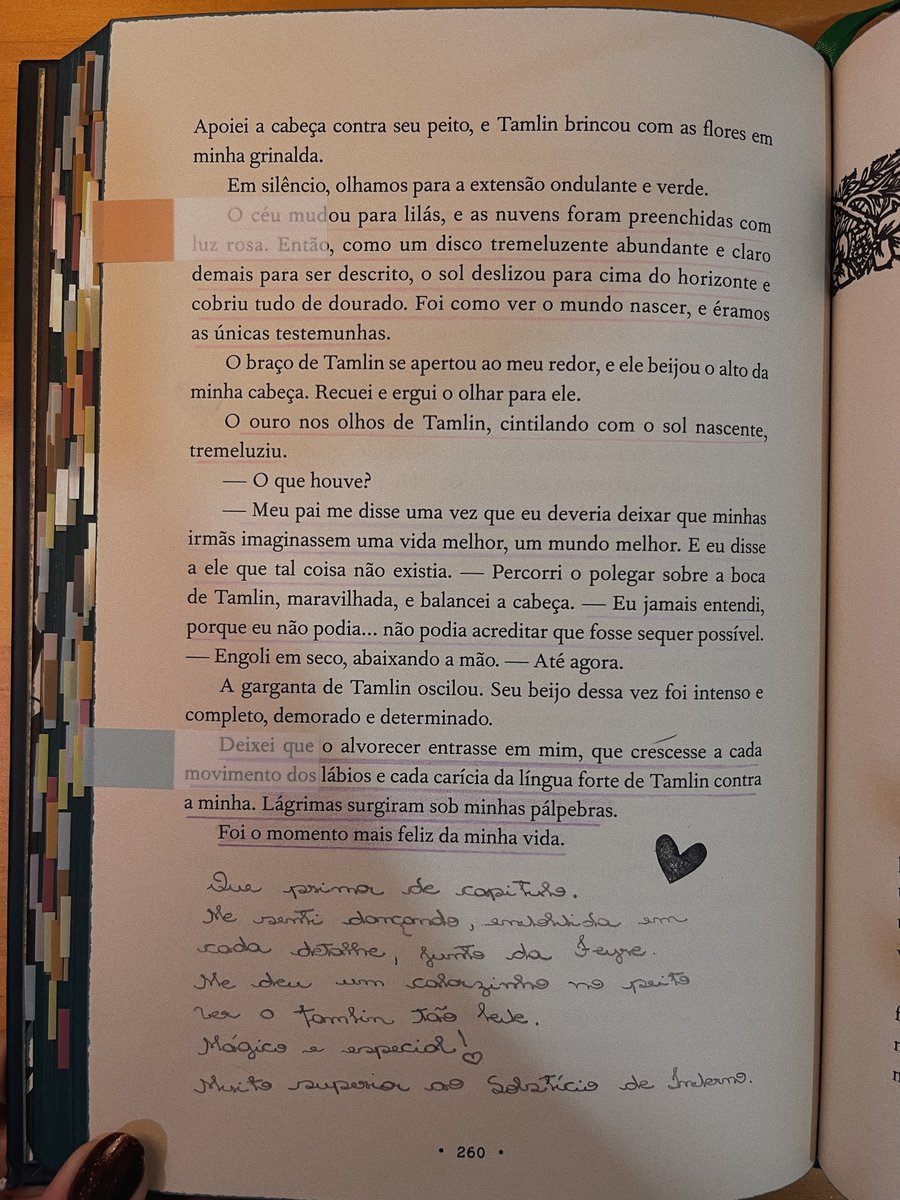 Apoiei a cabeça contra seu peito, e Tamlin brincou com as flores em
minha grinalda.
Em silêncio, olhamos para a extensão ondulante e verde.
O céu mudou para lilás, e as nuvens foram preenchidas com
luz rosa. Então, como um disco tremeluzente abundante e claro
demais para ser descrito, o sol deslizou para cima do horizonte e
cobriu tudo de dourado. Foi como ver o mundo nascer, e éramos
as únicas testemunhas.
O braço de Tamlin se apertou ao meu redor, e ele beijou o alto da
minha cabeça. Recuei e ergui o olhar para ele.
O ouro nos olhos de Tamlin, cintilando com o sol nascente,
tremeluziu.
— O que houve?
— Meu pai me disse uma vez que eu deveria deixar que minhas
irmãs imaginassem uma vida melhor, um mundo melhor. E eu disse
a ele que tal coisa não existia. — Percorri o polegar sobre a boca
de Tamlin, maravilhada, e balancei a cabeça. — Eu jamais entendi,
porque eu não podia... não podia acreditar que fosse sequer possível.
— Engoli em seco, abaixando a mão. — Até agora.
A garganta de Tamlin oscilou. Seu beijo dessa vez foi intenso e
completo, demorado e determinado.
Deixei que o alvorecer entrasse em mim, que crescesse a cada
movimento dos lábios e cada carícia da língua forte de Tamlin contra
a minha. Lágrimas surgiram sob minhas pálpebras.
Foi o momento mais feliz da minha vida.
Que primor de capítulo.
Me senti dançando, envolvida em
cada detalhe, junto da Feyre.
Me deu um calorzinho no peito
ver o Tamlin tão leve.
Mágico e especial!
Muito superior ao Solstício de Inverno.
• 260 •